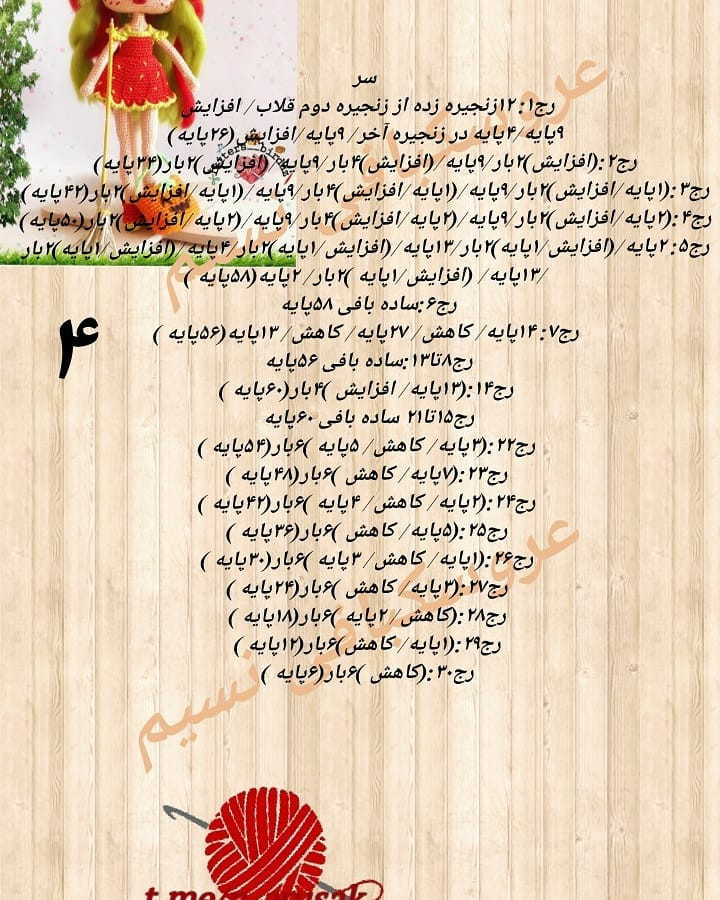 سر
رج۱: ۱۲زنجیره زده از زنجیره دوم قلاب/ افزایش
۹پایه/۴پایه در زنجیره آخر/ ۹پایه/افزایش(۲۶پایه)
رج۲:(افزایش)۲بار/۹پایه/(افزایش)۴بار/۹پایه/(افزایش)۲بار(۳۴پایه)
رج۳:(۱پایه/افزایش)۲بار/۹پایه/(۱پایه/افزایش)۴بار/۹پایه/(۱پایه/افزایش)۲بار(۴۲پایه)
رج۴:(۲پایه/افزایش)۲بار/۹پایه/(۲پایه/افزایش)۴بار/۹پایه/(۲پایه/افزایش)۲بار(۵۰پایه)
رج۵: ۲پایه/(افزایش/۱پایه)۲بار/۱۳پایه/(افزایش/۱پایه)۲بار/۴پایه/(افزایش/۱پایه)۲بار
/۱۳پایه/ (افزایش/۱پایه )۲بار/ ۲پایه(۵۸پایه )
رج۶:ساده بافی ۵۸پایه
رج۷: ۱۴پایه/ کاهش/ ۲۷پایه/ کاهش/ ۱۳پایه(۵۶پایه )
۴
رج۸تا۱۳:ساده بافی ۵۶پایه
رج۱۴:(۱۳پایه/ افزایش )۴بار(۶۰پایه )
رج۱۵تا۲۱ ساده بافی ۶۰پایه
رج۲۲:(۳پایه/ کاهش/ ۵پایه )۶بار(۵۴پایه )
رج۲۳:(۷پایه/ کاهش )۶بار(۴۸پایه )
رج۲۴:(۲پایه/ کاهش/ ۴پایه )۶بار(۴۲پایه )
رج۲۵:(۵پایه/ کاهش )۶بار(۳۶پایه )
رج۲۶:(۱پایه/ کاهش/ ۳پایه )۶بار(۳۰پایه )
رج۲۷:(۳پایه/ کاهش )۶بار(۲۴پایه )
رج۲۸:(کاهش/ ۲پایه )۶بار(۱۸پایه )
رج۲۹:(۱پایه/ کاهش)۶بار(۱۲پایه )
رج۳۰:(کاهش )۶بار(۶پایه )
عروسکبافی نسیم
عروسکبافی نسیم